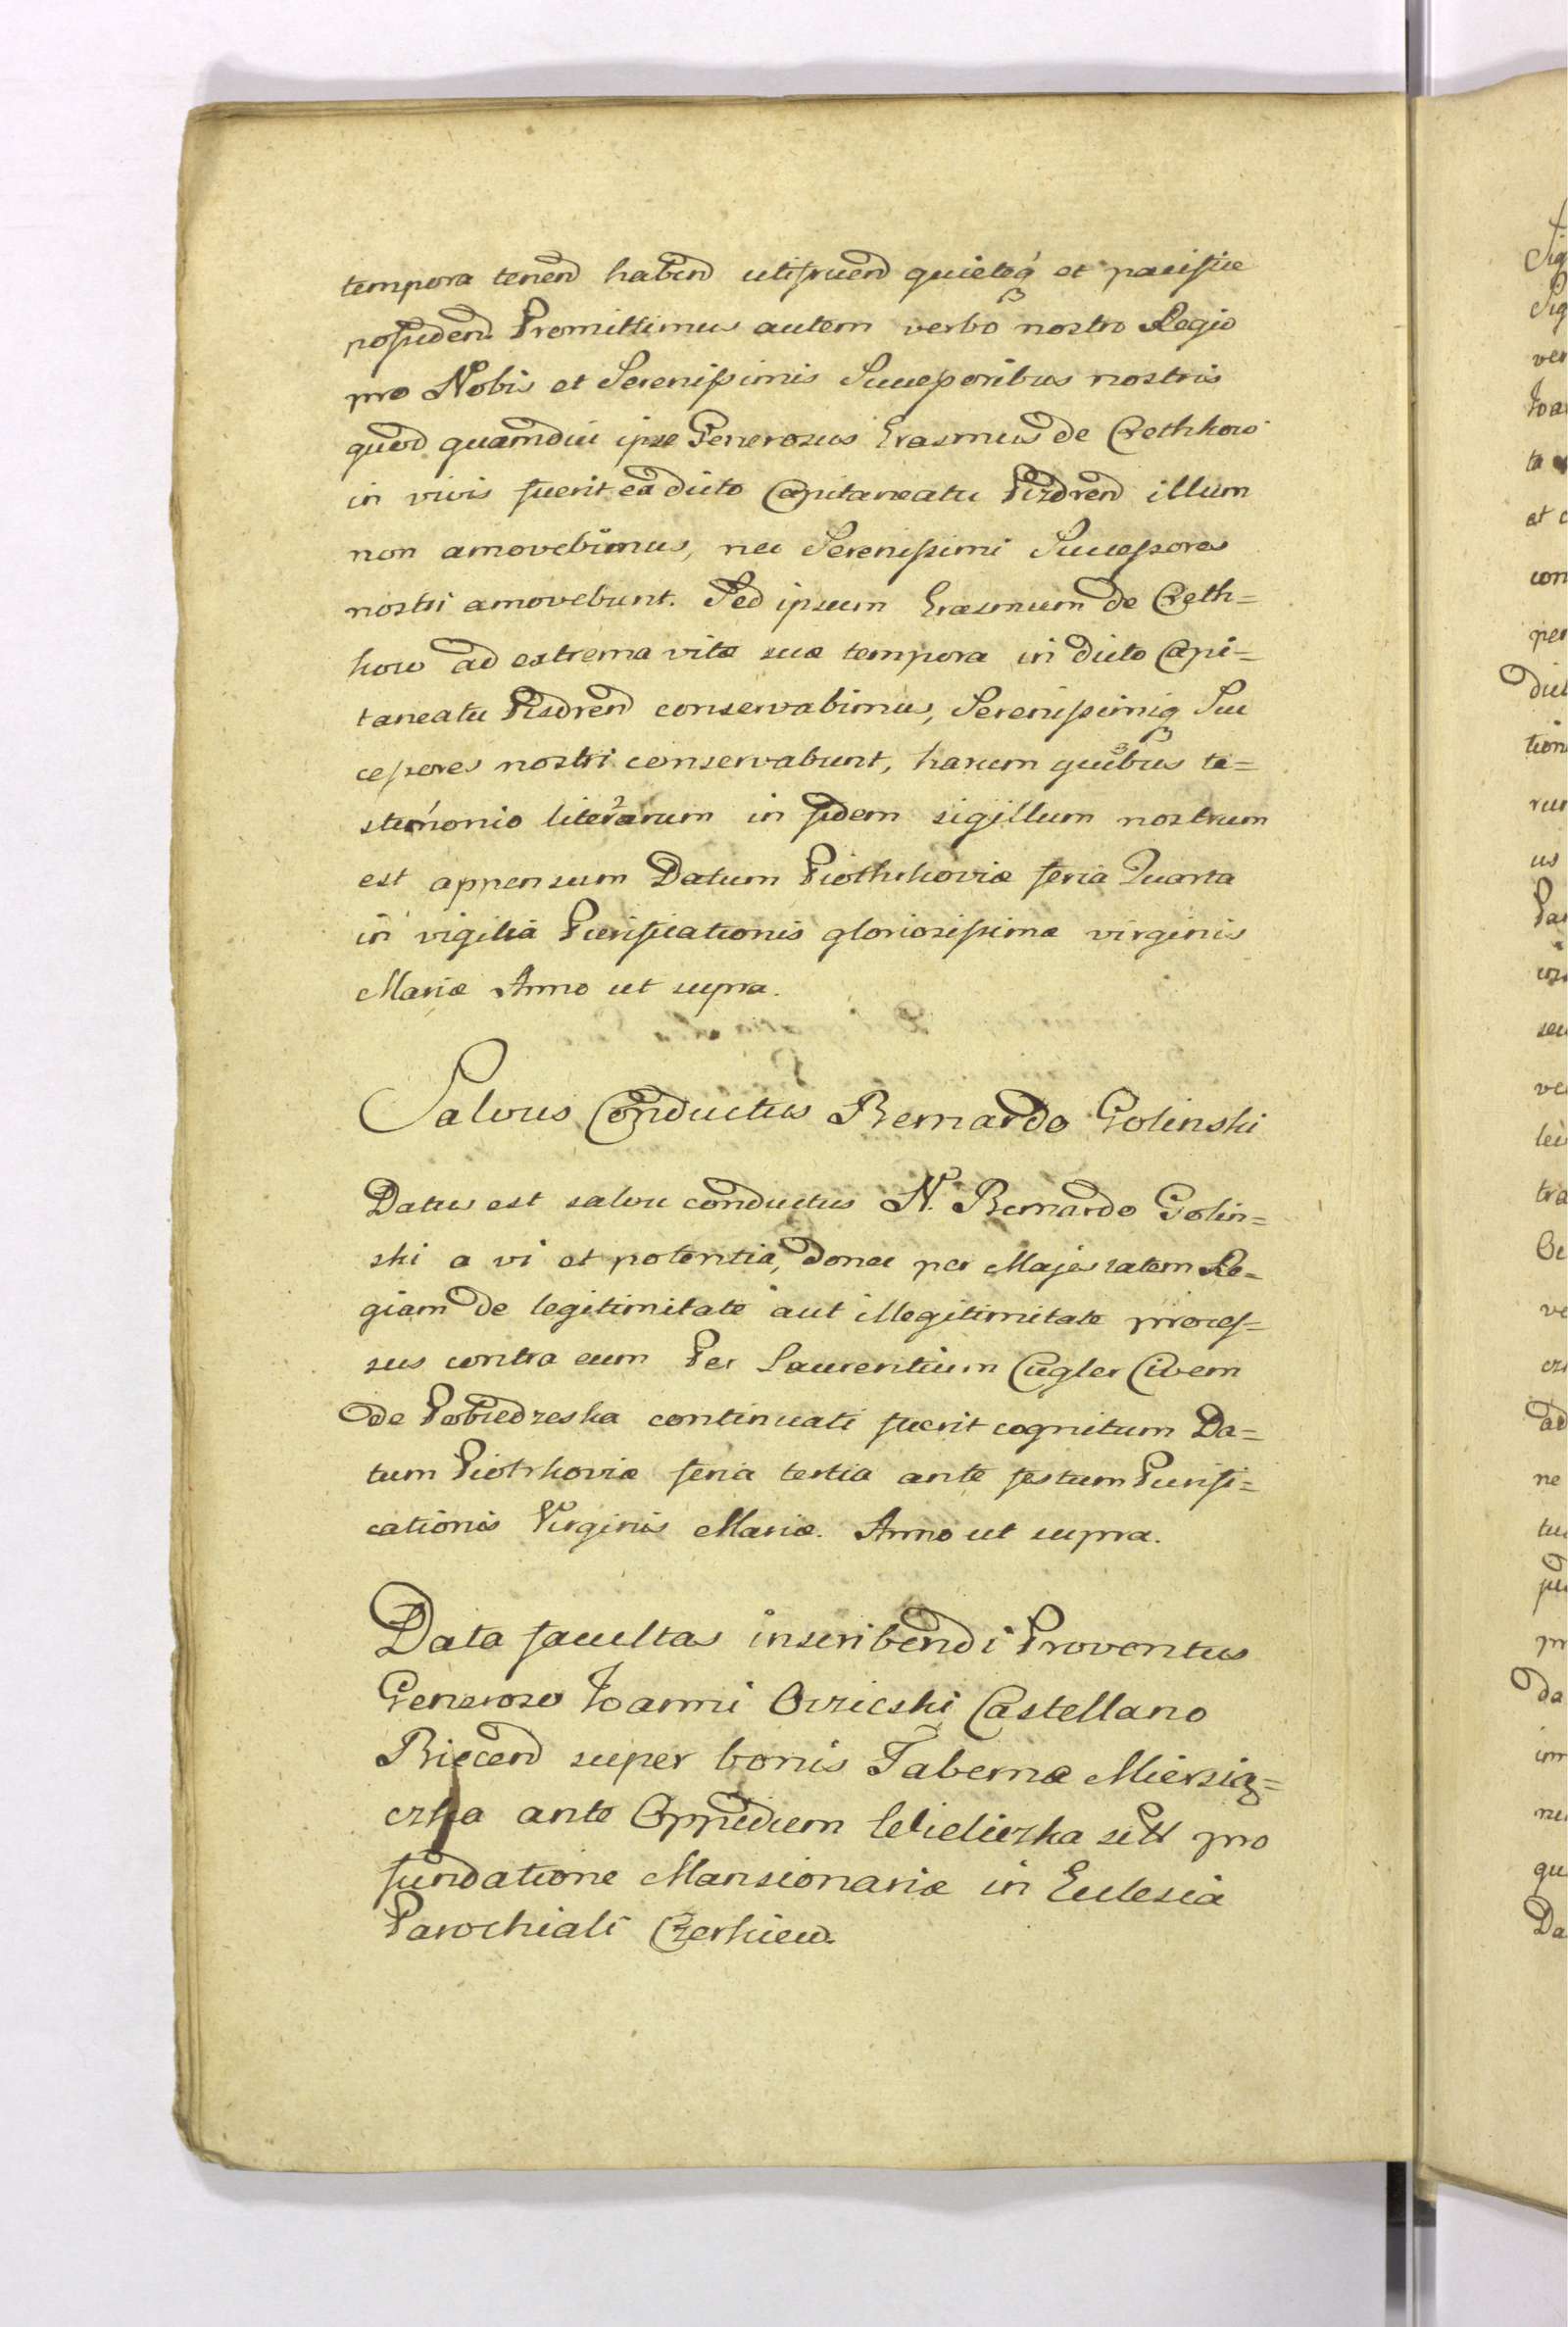 tempora tenend habend utifruend quieteq et pacifice
possidend. Promittimus autem verbo nostro Regio
pro Nobis et Serenissimis Successoribus nostris
quod quamdiu ipse Generosus Erasmus de Crethkow
in vivis fuerit ea dicto Capitaneatu Pizdrend illum
non amovebimus, nec Serenissimi Successores
nostri amovebunt. Sed ipsum Erasmum de Creth=
kow ad extrema vitæ suæ tempora in dicto Capi=
taneatu Pisdrend conservabimus, Serenissimiq Suc
cessores nostri conservabunt, harum quibus te=
stimonio literarum in fidem sigillum nostrum
est appensum Datum Piothrkoviæ feria Quarta
in vigilia Purificationis gloriosissimæ virginis
Mariæ Anno ut supra.
Salvus Conductus Bernardo Golinski
Datus est salvu conductus N. Bernardo Golin=
ski a vi et potentia, donec per Majestatem Re=
giam de legitimitate aut illegitimitate proces=
sus contra eum Per Laurentium Cugler Civem
de Pobiedzeska continuati fuerit cognitum Da=
tum Piotrkoviæ feria tertia ante festum Purifi=
cationis Virginis Mariæ. Anno ut supra.
Data facultas inscribendi Proventus
Generoso Joanni Ovzieski Castellano
Biecend super bonis Tabernæ Mierzią=
czka ante Oppidum Wieliczka sitt pro
fundatione Mansionariæ in Eulesia
Parochiali Czerkiew.